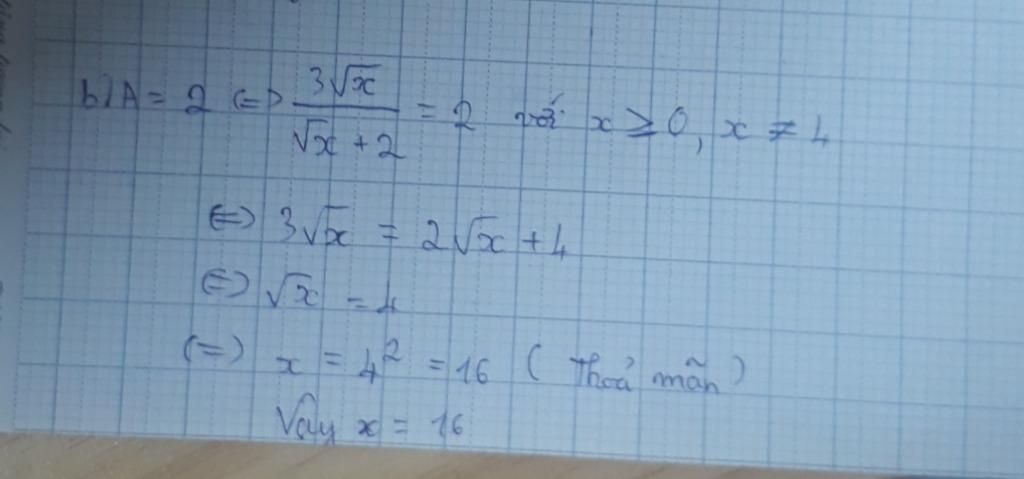 b) A = 2 <=> 3√x / (√x + 2) = 2 với x ≥ 0, x ≠ 4
<=> 3√x = 2√x + 4
<=> √x = 4
<=> x = 4² = 16 (Thoả mãn)
Vậy x = 16